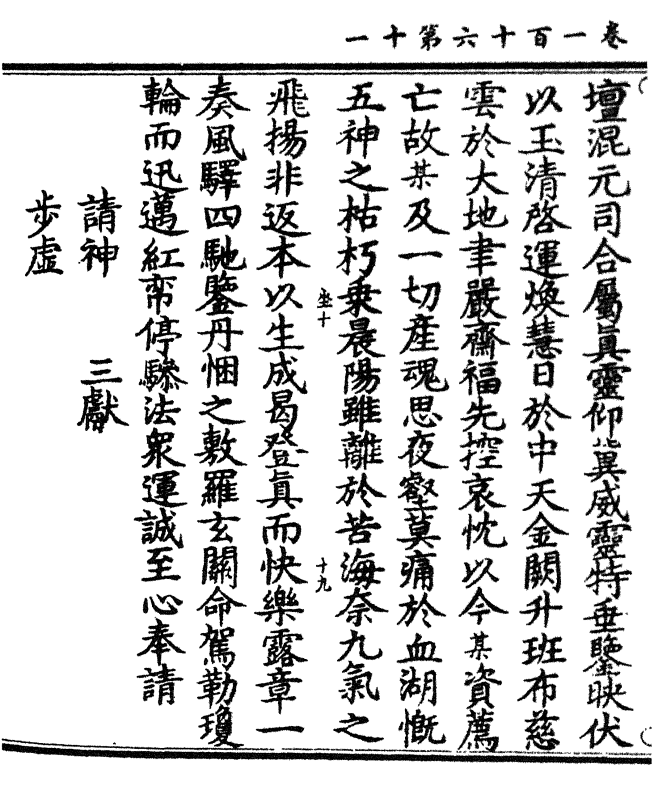 卷一百十六第十一
壇混元司合屬眞靈仰兾威靈特垂鑒映伏
以玉清啓運煥慧日於中天金闕升班布慈
雲於大地聿嚴齋福先控哀忱以今某資薦
亡故某及一切產魂思夜壑莫痛於血湖慨
五神之枯朽乗晨陽雖離於苦海奈九氣之
坐十
十九
飛揚非返本以生成曷登眞而快樂露章一
奏風驛四馳鑒丹悃之敷羅玄關命駕勒瓊
輪而迅邁紅帟停驂法衆運誠至心奉請
請神 三獻
步虛